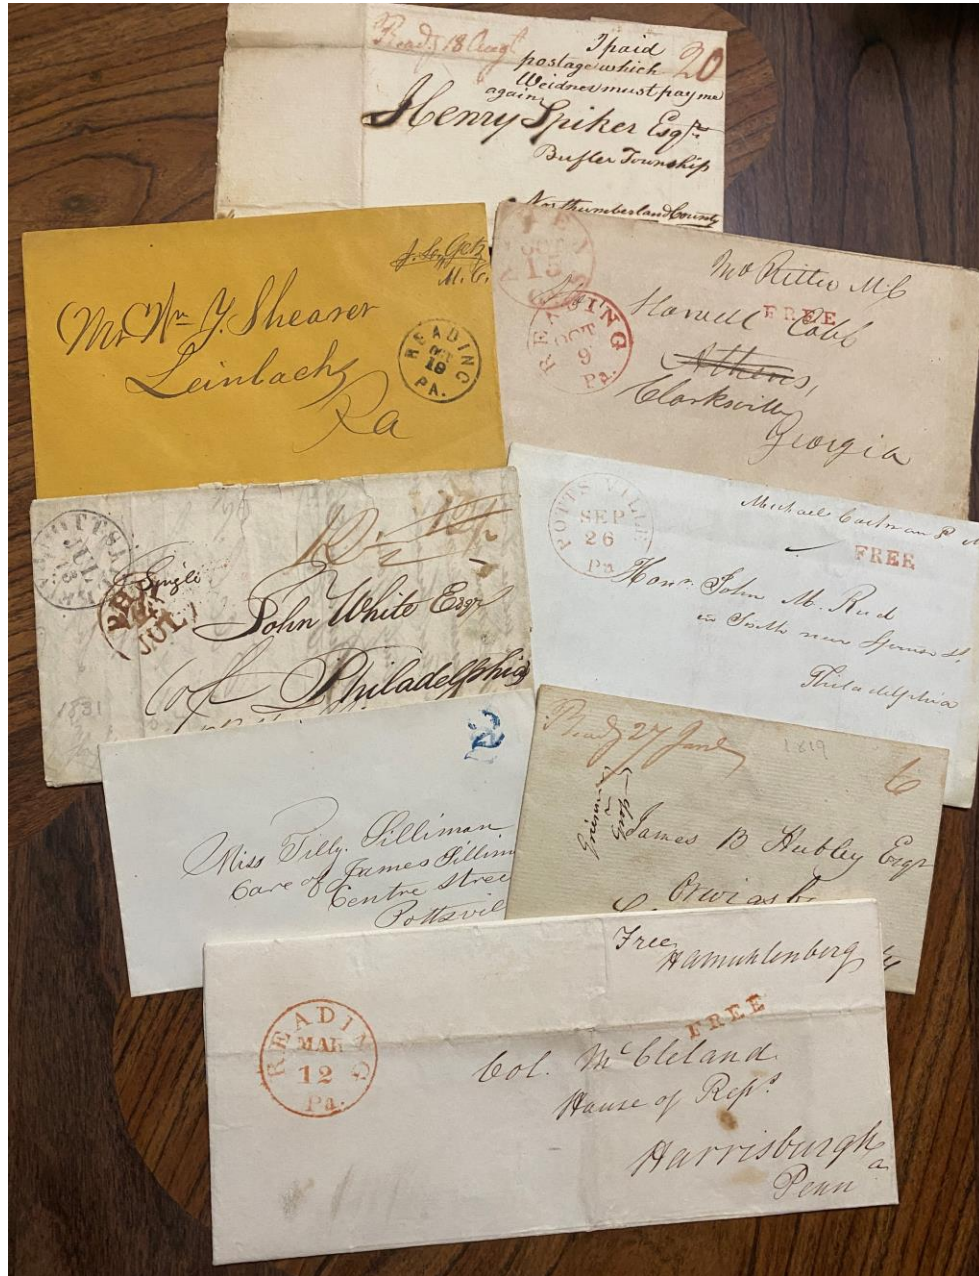 Read'g 18 Augt
I paid
20
postage which
Weidner must pay me
again
Henry Spiker Esqr.
Bufler Township
Northumberland County
J. L. Getz
M.C.
Mr Wm Y. Shearer
Leinbachs
Pa
READING
OCT
19
PA.
OCT
15
Ritter M.C
FREE
Howell Cobb
Athens,
Clarksville
Georgia
READING
OCT
9
Pa.
POTTSVILLE
JUL
13
Single
PHI
JUL
John White Esqr
of Philadelphia
1831
POTTSVILLE
SEP
26
Pa
Michael
FREE
Honr. John M. Read
in Sixth near Spruce St.
Philadelphia
Miss Tilly. Silliman
Care of James Sillim
Centre Stree
Pottsvil
Readg 27 Jany
1819
6
James B Hubley Esqr
Orwigsb
Free
Hamuhlenberg
FREE
READING
MAR
12
Pa.
Col. McCleland
House of Reps.
Harrisburgh
Penna